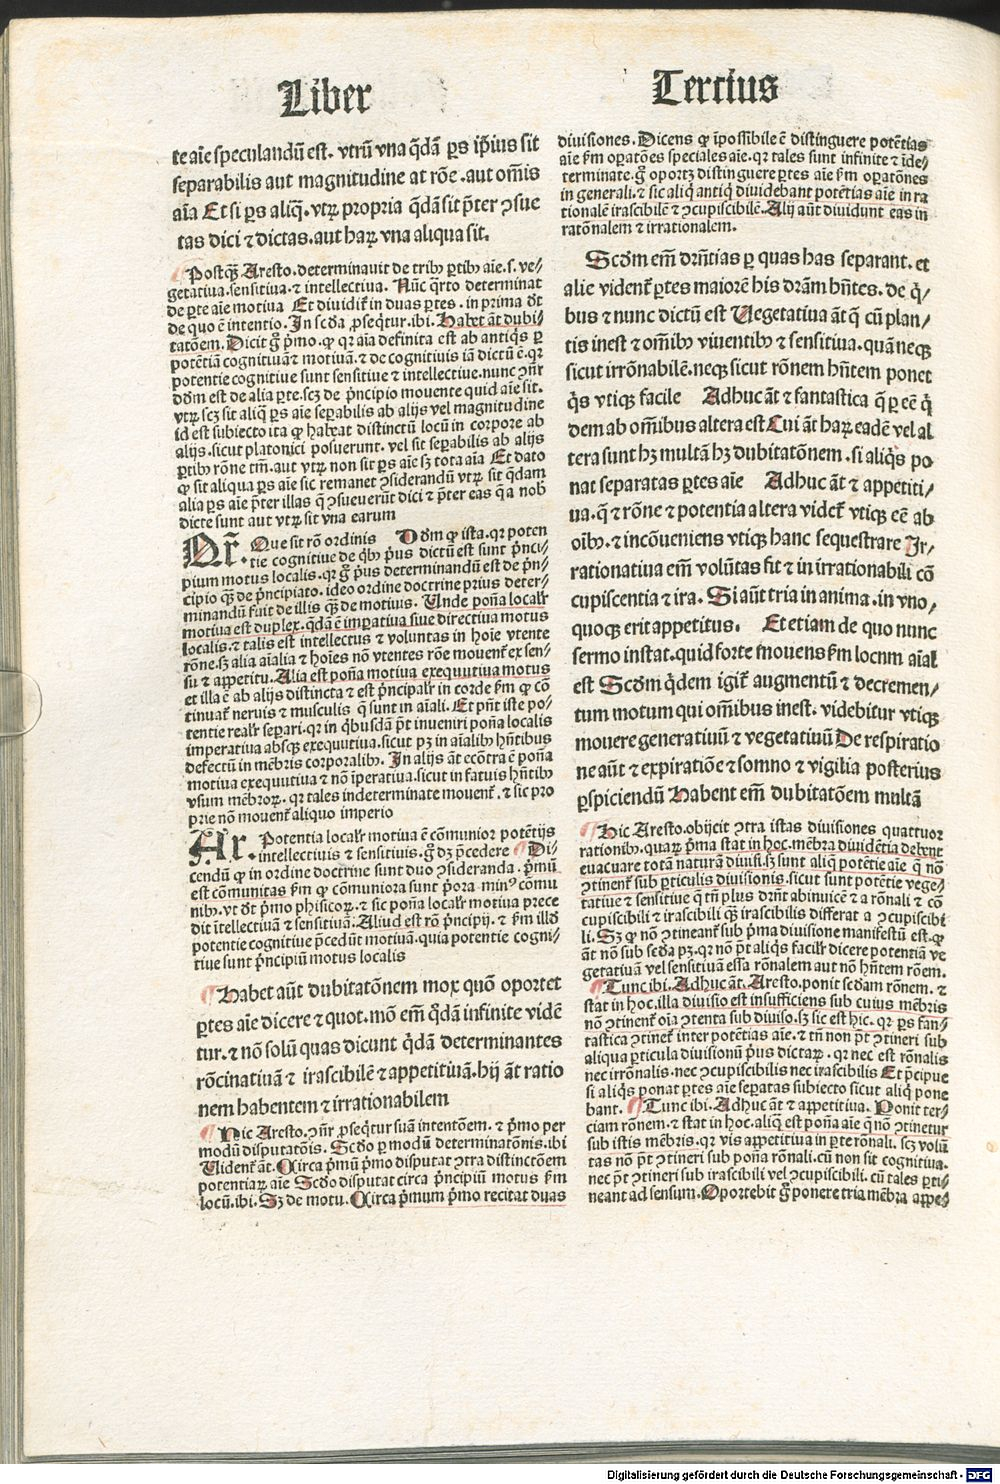 Liber
te aīe speculandū est. vtrū vna q̄dā ꝑs ip̄ius sit
separabilis aut magnitudine at rōe .aut om̄is
aīa Et si ꝑs aliq̄. vtrꝝ propria q̄dā sit p̄ter ꝯsue
tas dici ⁊ dictas. aut haꝝ vna aliqua sit.
¶ Postq̄ꝫ Aresto. determinauit de tribꝰ ꝑtibꝰ aīe. s. ve⸗
getatiua. sensitiua. ⁊ intellectiua. Nūc q̄rto determinat
de ꝑte aīe motiua Et diuidit̄ in duas ꝑtes. in prima dr̄t
de quo ē intentio. In scd̓a ꝓseq̄tur. ibi. Habet āt dubi⸗
tatōem. Dicit gͦ p̄mo. ꝙ qꝛ aīa definita est ab antiq̄s ꝑ
potētiā cognituā ⁊ motiuā. ⁊ de cognitiuis iā dictū ē. qꝛ
potentie cognitiue sunt sensitiue ⁊ intellectiue. nunc ꝯn̄r
dōm est de alia ꝑte. scꝫ de p̄ncipio mouente quid aīe sit.
vtrꝝ scꝫ sit aliq̄ ꝑs aīe seꝑabilis ab alijs vel magnitudine
id est subiecto ita ꝙ habeat distinctū locū in corpore ab
alijs. sicut platonici posuerunt. vel sit seꝑabilis ab alijs
ꝑtibꝰ rōne tm̄. aut vtrꝝ non sit ꝑs aīe sꝫ tota aīa Et dato
ꝙ sit aliqua ꝑs aīe sic remanet ꝯsiderandū vtrꝝ sit q̄dam
alia ꝑs aīe p̄ter illas q̄ ꝯsueuerūt dici ⁊ p̄ter eas q̄ a nob̄
dicte sunt aut vtrꝝ sit vna earum
Qr̄. Que sit rō ordinis Dd̓m ꝙ ista. qꝛ poten
tie cognitiue de q̄bꝰ p̄us dictū est sunt p̄nci⸗
pium motus localis. qꝛ gͦ p̄us determinandū est de p̄n⸗
cipio q̄ꝫ de p̄ncipiato. ideo ordine doctrine prius deter⸗
minandū fuit de illis q̄ꝫ de motiuis. Unde poña localr̄
motiua est duplex. q̄dā ē imꝑatiua siue directiua motus
localis. ⁊ talis est intellectus ⁊ voluntas in hoīe vtente
rōne. sꝫ alia aīalia ⁊ hoīes nō vtentes rōe mouent̄ ex sen⸗
su ⁊ appetitu. Alia est poña motiua exequutiua motus
et illa ē ab alijs distincta ⁊ est p̄ncipalr̄ in corde ẜm ꝙ cō
tinuat̄ neruis ⁊ musculis q̄ sunt in aīali. Et pn̄t iste po⸗
tentie realr̄ seꝑari. qꝛ in q̄busdā p̄t inueniri poña localis
imperatiua absqꝫ exequutiua. sicut pꝫ in aīalibꝰ hn̄tibus
defectū in mēbris corporalibꝰ. In alijs āt ecōtra ē poña
motiua exequutiua ⁊ nō īperatiua. sicut in fatuis hn̄tibꝰ
vsum mēbroꝝ. qꝛ tales indeterminate mouent̄. ⁊ sic pro
prie nō mouent̄ aliquo imperio
Ar. Potentia localr̄ motiua ē cōmunior potētijs
intellectiuis ⁊ sensitiuis. gͦ dꝫ p̄cedere ¶ Di⸗
cendū ꝙ in ordine doctrine sunt duo ꝯsideranda. p̄mū
est cōmunitas ẜm ꝙ cōmuniora sunt p̄ora minꝰ cōmu
nibꝰ. vt dr̄ p̄mo phisicoꝝ. ⁊ sic poña localr̄ motiua prece
dit ītellectiuā ⁊ sensitiuā. Aliud est rō p̄ncipij. ⁊ ẜm illd̓
potentie cognitiue p̄cedūt motiuā. quia potentie cogni⸗
tiue sunt p̄ncipiū motus localis
¶ Habet aūt dubitatōnem mox quō oportet
ꝑtes aīe dicere ⁊ quot. mō em̄ q̄dā infinite vidē
tur. ⁊ nō solū quas dicunt q̄dā determinantes
rōcinatiuā ⁊ irascibilē ⁊ appetitiuā. hij āt ratio
nem habentem ⁊ irrationabilem
¶ Hic Aresto. ꝯn̄r ꝓseq̄tur suā intentōem. ⁊ p̄mo per
modū disputatōis. Scd̓o ꝑ modū determinatōnis. ibi
Uident̄ āt. Circa p̄mū p̄mo disputat ꝯtra distinctōem
potentiaꝝ aīe Scd̓o disputat circa p̄ncipiū motus ẜm
locū. ibi. Sꝫ de motu. Circa p̄mum p̄mo recitat duas
Tercius
diuisiones. Dicens ꝙ īpossibile ē distinguere potētias
aīe ẜm oꝑatōes speciales aīe. qꝛ tales sunt infinite ⁊ īde⸗
terminate. gͦ oportꝫ distinguere ꝑtes aīe ẜm oꝑatōnes
in generali. ⁊ sic aliq̄ antiq̄ diuidebant potētias aīe in ra
tionalē irascibilē ⁊ ꝯcupiscibilē. Alij aūt diuidunt eas in
ratōnalem ⁊ irrationalem.
Scd̓m em̄ drn̄tias ꝑ quas has separant. et
alie vident̄ ꝑtes maiorē his drām hn̄tes. de q̄⸗
bus ⁊ nunc dictū est Uegetatiua āt q̄ cū plan⸗
tis inest ⁊ om̄ibꝰ viuentibꝰ ⁊ sensitiua. quā neqꝫ
sicut irrōnabilē. neqꝫ sicut rōnem hn̄tem ponet
q̄s vtiqꝫ facile Adhuc āt ⁊ fantastica q̄ ꝑ eē q̄
dem ab om̄ibus altera est Cui āt haꝝ eadē vel al
tera sunt hꝫ multā hꝫ dubitatōnem. si aliq̄s po
nat separatas ꝑtes aīe Adhuc āt ⁊ appetiti⸗
ua. q̄ ⁊ rōne ⁊ potentia altera videt̄ vtiqꝫ eē ab
oībꝰ. ⁊ incōueniens vtiqꝫ hanc sequestrare Ir⸗
rationatiua em̄ volūtas fit ⁊ in irrationabili cō
cupiscentia ⁊ ira. Si aūt tria in anima. in vno⸗
quoqꝫ erit appetitus. Et etiam de quo nunc
sermo instat. quid forte mouens ẜm locum aīal
est Scd̓m q̄dem igit̄ augmentū ⁊ decremen⸗
tum motum qui om̄ibus inest. videbitur vtiqꝫ
mouere generatiuū ⁊ vegetatiuū De respiratio
ne aūt ⁊ expiratiōe ⁊ somno ⁊ vigilia posterius
ꝑspiciendū Habent em̄ dubitatōem multā
¶ Hic Aresto. obijcit ꝯtra istas diuisiones quattuor
rationibꝰ. quaꝝ p̄ma stat in hoc. mēbra diuidētia debent
euacuare totā naturā diuisi. sꝫ sunt aliq̄ potētie aīe q̄ nō
ꝯtinent̄ sub ꝑticulis diuisionis. sicut sunt potētie vege⸗
tatiue ⁊ sensitiue q̄ tn̄ plus drn̄t abinuicē ⁊ a rōnali ⁊ cō
cupiscibili ⁊ irascibili q̄ꝫ irascibilis differat a ꝯcupiscibi
li. Sꝫ ꝙ nō ꝯtineant̄ sub p̄ma diuisione manifestū est. ꝙ
āt nō sub scd̓a pꝫ. qꝛ nō p̄t aliq̄s facilr̄ dicere potentiā ve
getatiuā vel sensitiuā essa rōnalem aut nō hn̄tem rōem.
¶ Tunc ibi. Adhuc āt. Aresto. ponit scd̓am rōnem. ⁊
stat in hoc. illa diuisio est insufficiens sub cuius mēbris
nō ꝯtinent̄ oīa ꝯtenta sub diuiso. sꝫ sic est hic. qꝛ ꝑs fan⸗
tastica ꝯtinet̄ inter potētias aīe. ⁊ tn̄ non p̄t ꝯtineri sub
aliqua ꝑticula diuisionū p̄us dictaꝝ. qꝛ nec est rōnalis
nec irrōnalis. nec ꝯcupiscibilis nec irascibilis Et p̄cipue
si aliq̄s ponat ꝑtes aīe seꝑatas subiecto sicut aliq̄ pone
bant. ¶ Tunc ibi. Adhuc āt ⁊ appetitiua. Ponit ter⸗
ciam rōnem. ⁊ stat in hoc. aliq̄ est poña aīe q̄ nō ꝯtinetur
sub istis mēbris. qꝛ vis appetitiua in ꝑte rōnali. scꝫ volū
tas nō p̄t ꝯtineri sub poña rōnali. cū non sit cognitiua.
nec p̄t ꝯtineri sub irascibili vel ꝯcupiscibili. cū tales ꝑti⸗
neant ad sensum. Oportebit gͦ ponere tria mēbra appe⸗
Digitalisierung gefördert durch die Deutsche Forschungsgemeinschaft - DFG